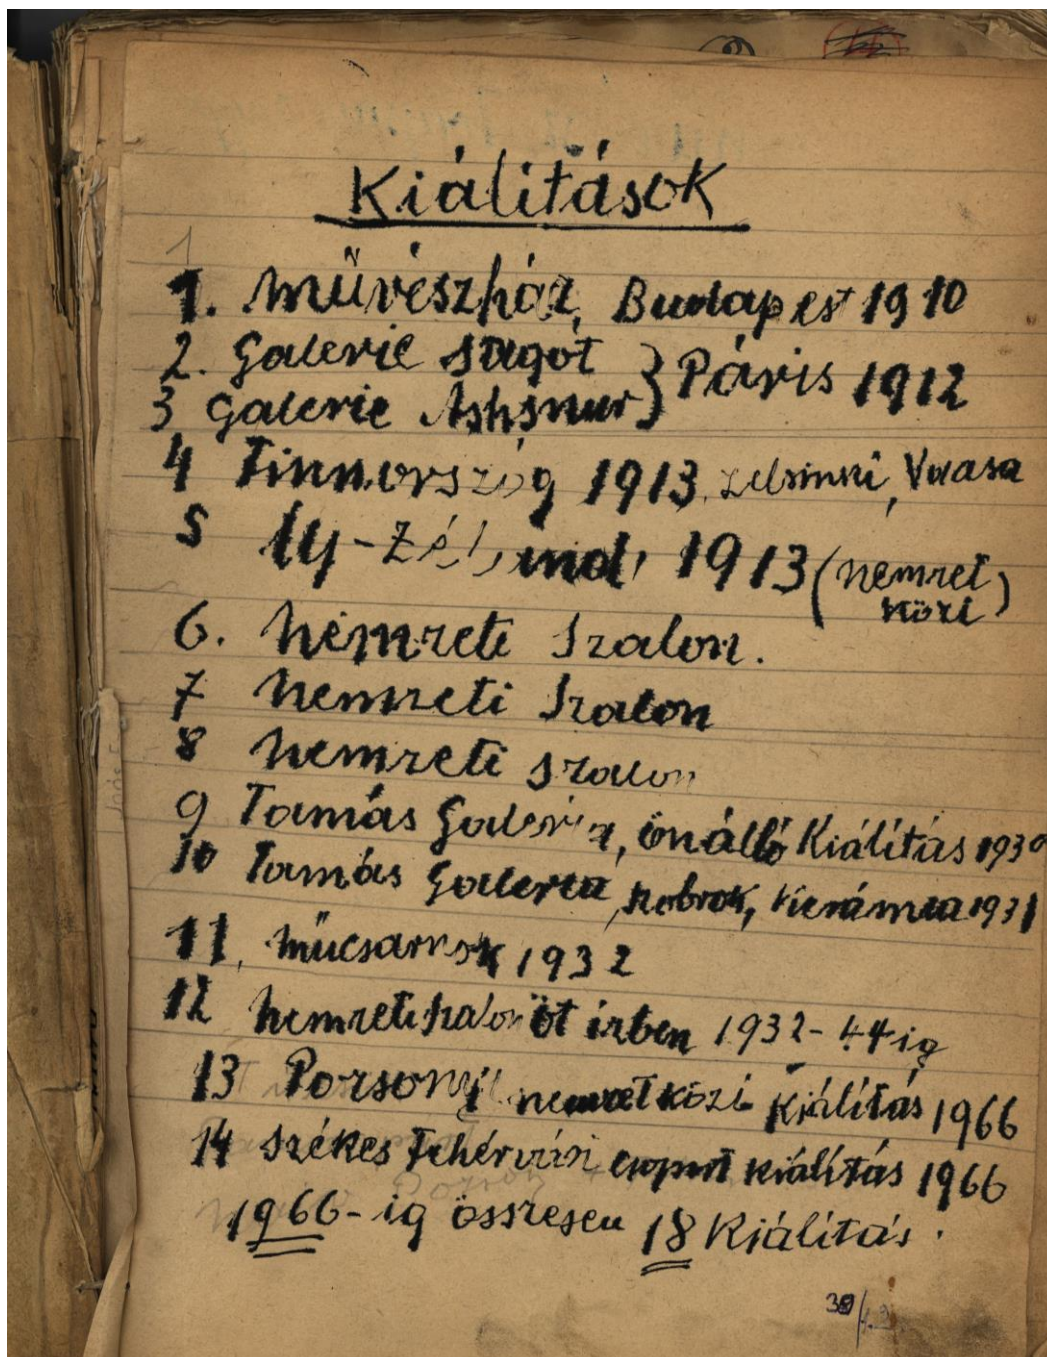 Kiálitások
1. Művészház, Budapest 1910
2. Galerie Sagot } Páris 1912
3 Galerie Ashsnur
4 Finnország 1913, Helsinki, Vaasa
5 Uj-Zéland, 1913 (nemzet
közi)
6. Nemzeti Szalon.
7 Nemzeti Szalon
8 Nemzeti Szalon
9 Tamás Galéria, önálló Kiálítás 1930
10 Tamás Galeria, szobrok, Kerámia 1931
11, Műcsarnok 1932
12 Nemzeti szalon öt izben 1932-44 ig
13 Pozsonyi nemzetközi Kiálítás 1966
14 Székes Fehérvári csoport kiálítás 1966
1966-ig összesen 18 Kiálítás.